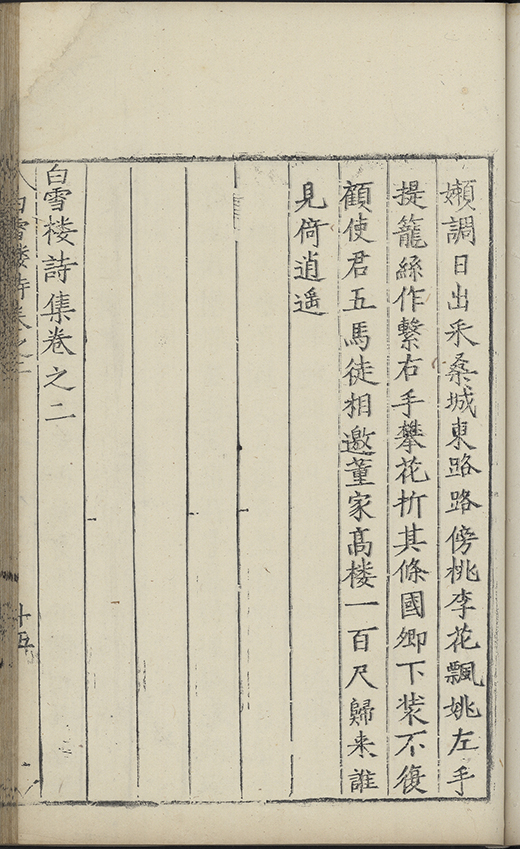 嬾調日出采桑城東路路傍桃李花飄姚左手
提籠絲作繫右手攀花折其條國卿下裝不復
顧使君五馬徒相邀董家高楼一百尺歸来誰
見倚逍遥
白雪楼詩集卷之二
白雪楼詩集卷之二
十五